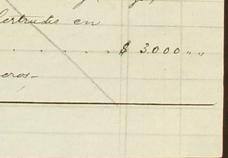 Gertrudis en
. . . . . . $ 3.000 " "
eros-